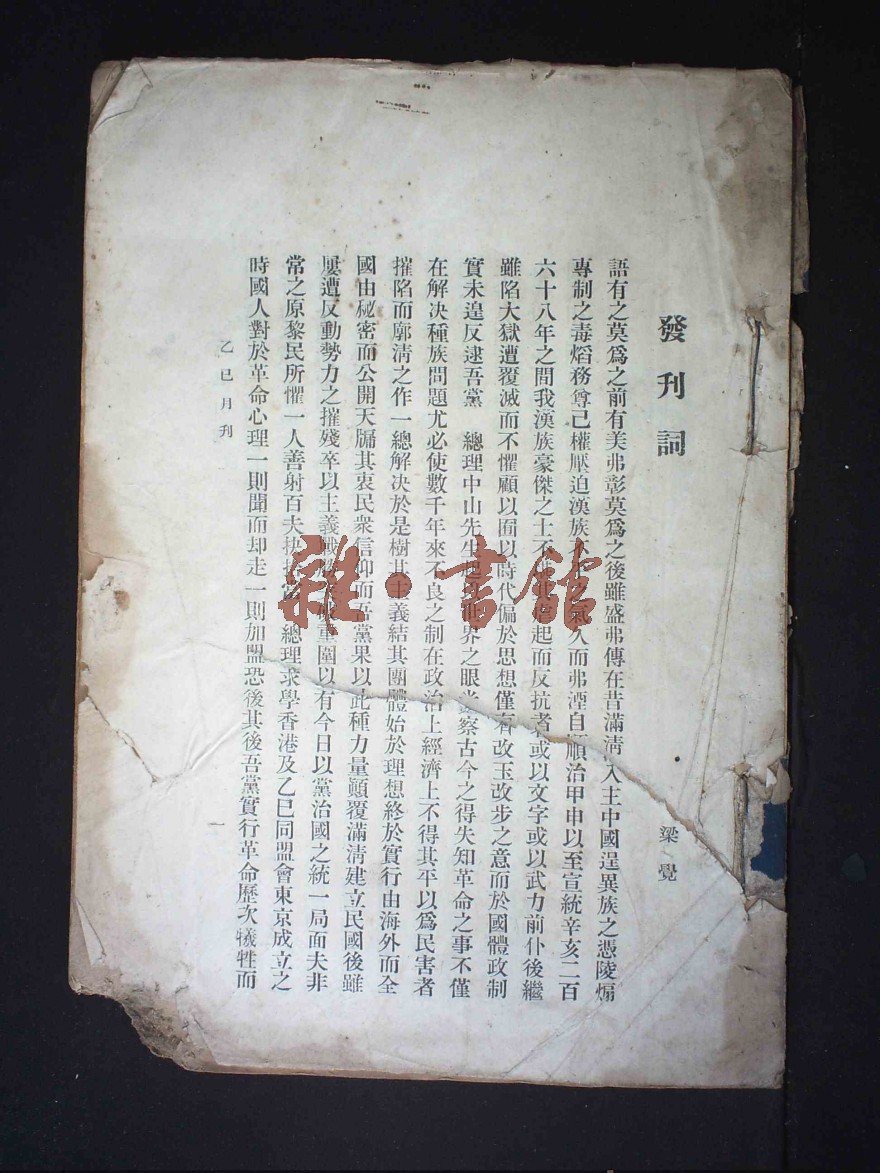 發刊詞
梁覺
語有之莫爲之前有美弗彰莫爲之後雖盛弗傳在昔滿淸入主中國逞異族之憑陵煽
專制之毒熖務尊己權壓迫漢族之氣久而弗湮自順治甲申以至宣統辛亥二百
六十八年之間我漢族豪傑之士不起而反抗者或以文字或以武力前仆後繼
雖陷大獄遭覆滅而不懼顧以囿以時代偏於思想僅有改玉改步之意而於國體政制
實未遑反逮吾黨 總理中山先生世界之眼察古今之得失知革命之事不僅
在解决種族問題尤必使數千年來不良之制在政治上經濟上不得其平以爲民害者
摧陷而廓淸之作一總解决於是樹其主義結其團體始於理想終於實行由海外而全
國由秘密而公開天牖其衷民衆信仰而吾黨果以此種力量顚覆滿淸建立民國後雖
屢遭反動勢力之摧殘卒以主義戰重圍以有今日以黨治國之統一局面夫非
常之原黎民所懼一人善射百夫决拾當 總理求學香港及乙巳同盟會東京成立之
時國人對於革命心理一則聞而却走一則加盟恐後其後吾黨實行革命歷次犧牲而
乙巳月刊
一
雜·書館